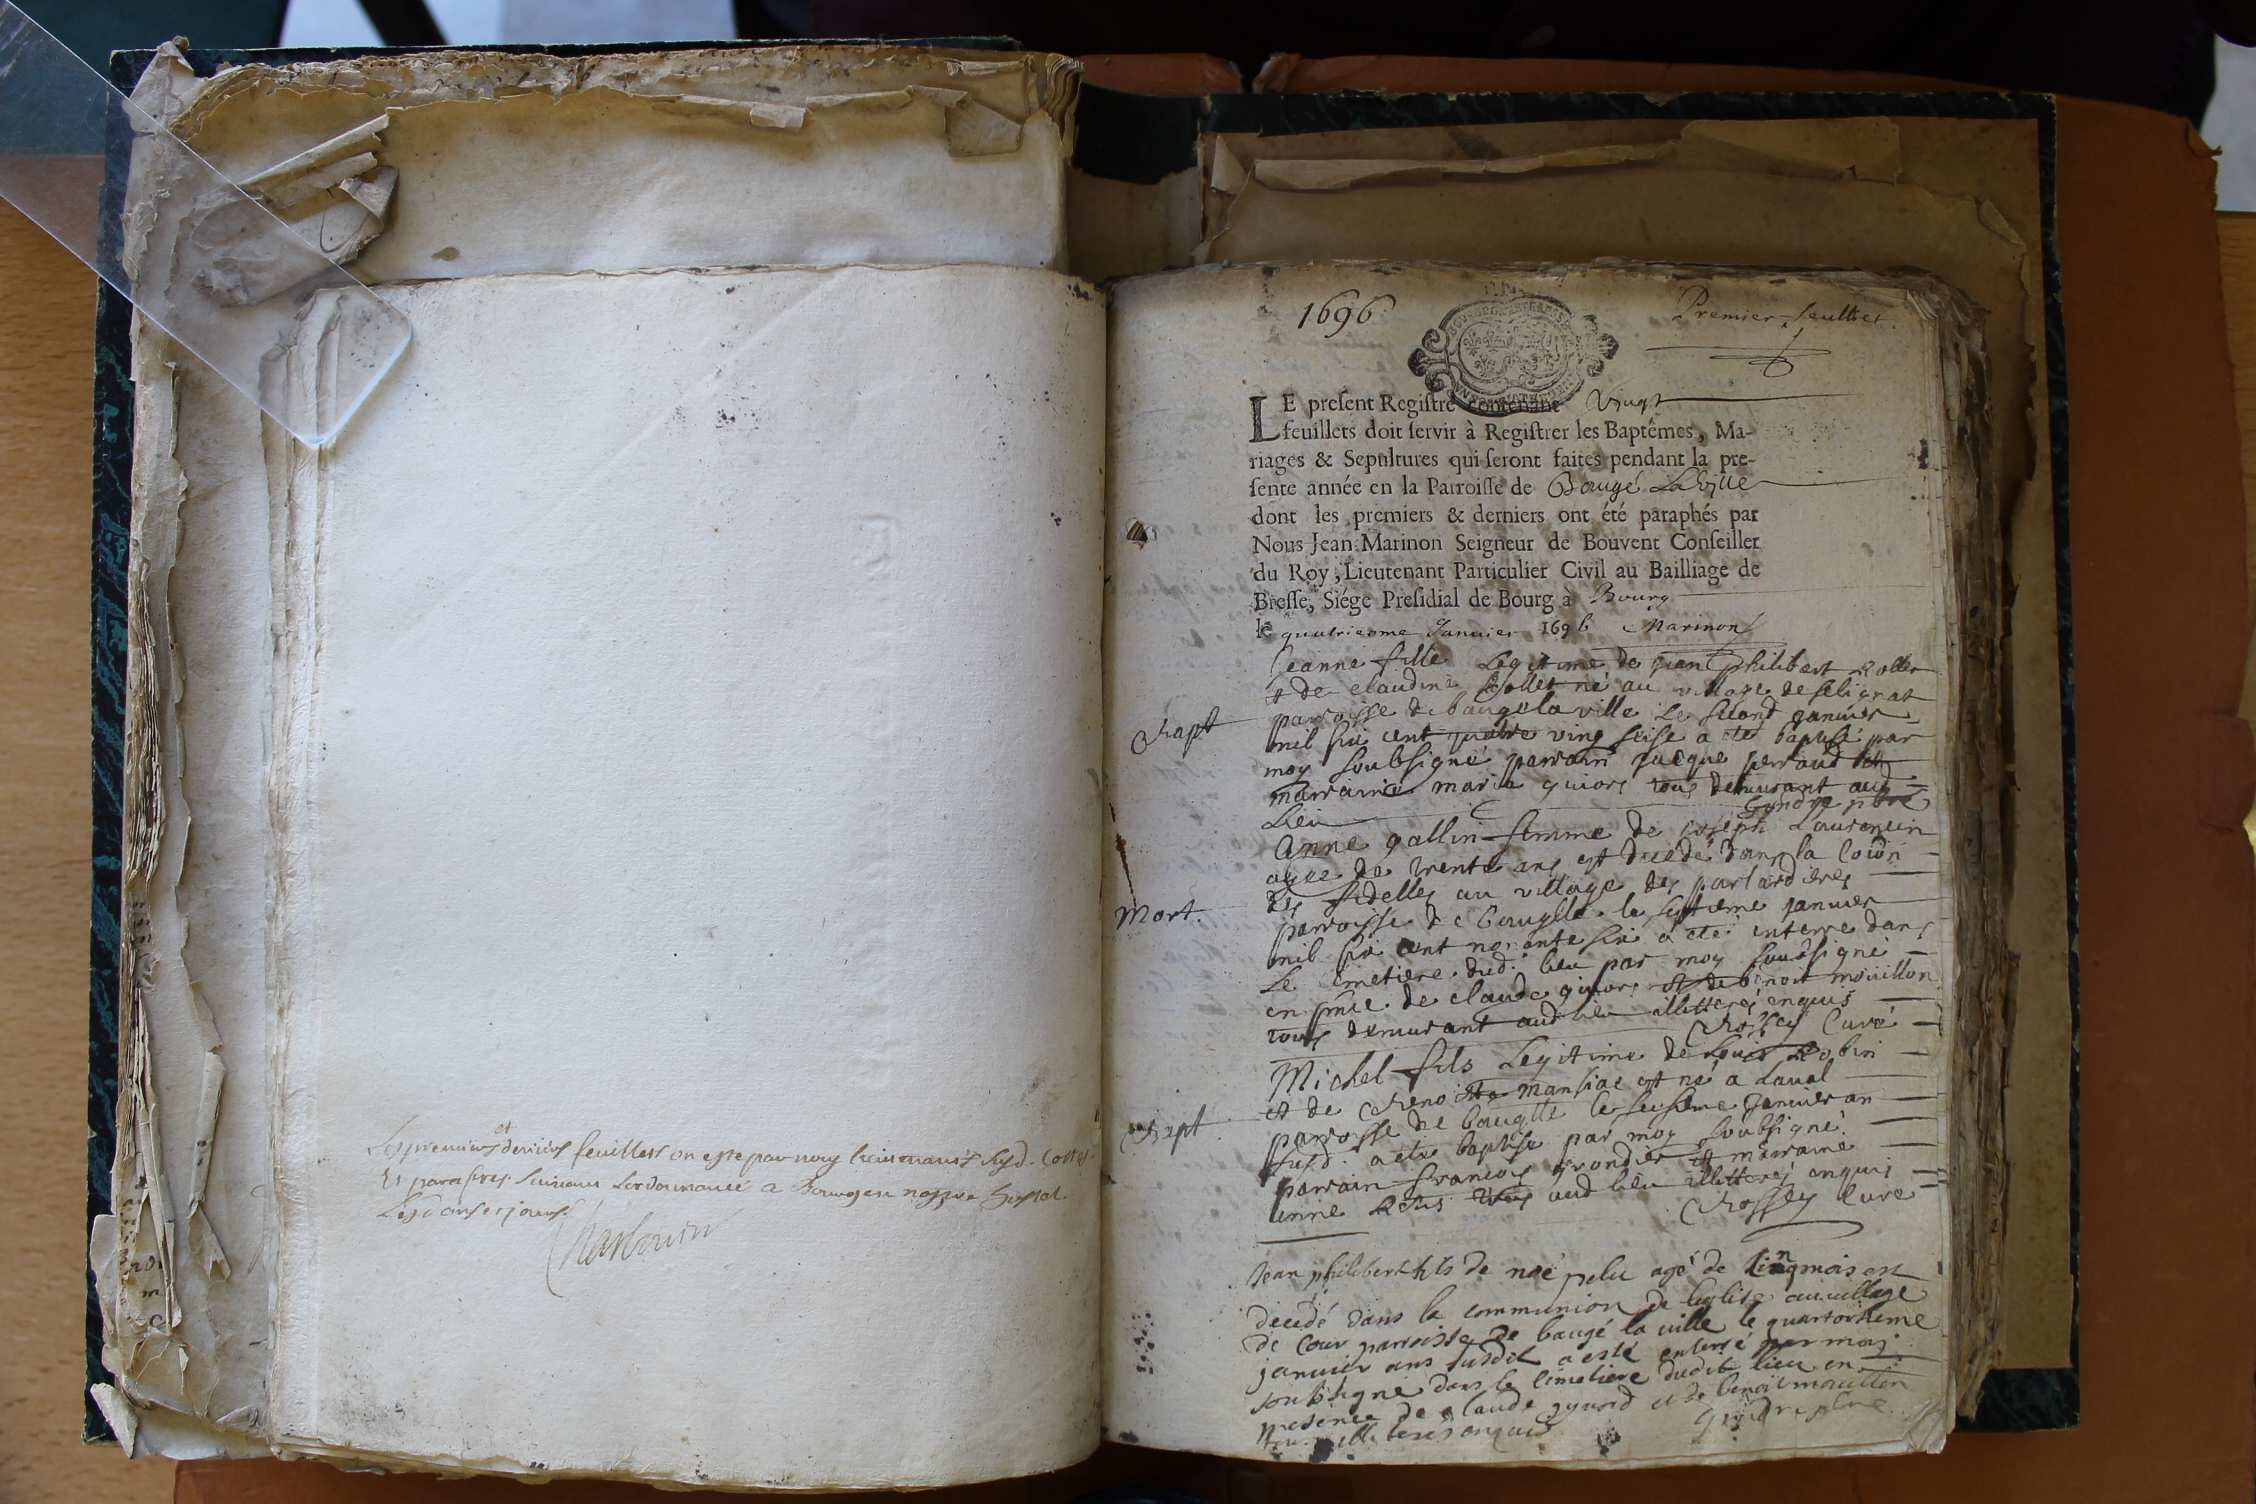 Les premiers et derniers feuillets on este par nous lieutenant susd. Cottes
Et paraphes suivant Lordonnance a Bourg en nostre hostel
Les an et jour
1696
Premier feuillet
LE preſent Regiſtre contenant Vingt
feuillets doit ſervir à Regiſtrer les Baptêmes, Ma-
riages & Sepultures qui ſeront faites pendant la pre-
ſente année en la Parroiſſe de Baugé La Ville
dont les premiers & derniers ont été paraphés par
Nous Jean Marinon Seigneur de Bouvent Conſeiller
du Roy, Lieutenant Particulier Civil au Bailliage de
Breſſe, Siége Preſidial de Bourg à Bourg
le quatriesme Janvier 1696 Marinon
Jeanne fille Legitime de jean philibert Rollet
et de claudine né au village de
parroisse de baugé la ville le second janvier
mil six cent quatre ving seise a été baptisé par
moy soubsigné parrain jacque perraud et
marraine marie guiors tous demurant aud
Lieu gyndre pbre
Bapt
Anne gallin femme de joseph Laurencin
agee de trente ans est decedé dans la
des fidelles au village des
parroisse de le septieme janvier
mil six cent nonante six a été interre dans
Le cmetiere dud. lieu par moy soubsigné
en pnce de claude guiors et de benoit mouillon
tous demurant aud lieu illitterés enquis
Curé
Mort.
Michel fils Legitime de Louis Robin
et de Benoitte mansiat est né a Laval
parroisse de le sesieme janvier an
susd. a ete baptisé par moy soubsigné
parrain francois et marraine
anne tous aud lieu illitterés enquis
Curé
Bapt
Jean philibert fils de noé pelu agé de cinq mois est
decedé dans la communion de leglise au village
de Cour parroisse de baugé la ville le quatorsieme
janvier ans susdit a esté enterré par moy
soubsigné dans le cimetiere dudit lieu en
presence de claude guiord et de benoit mouillon
tous illiterés enquis gyndre pbre